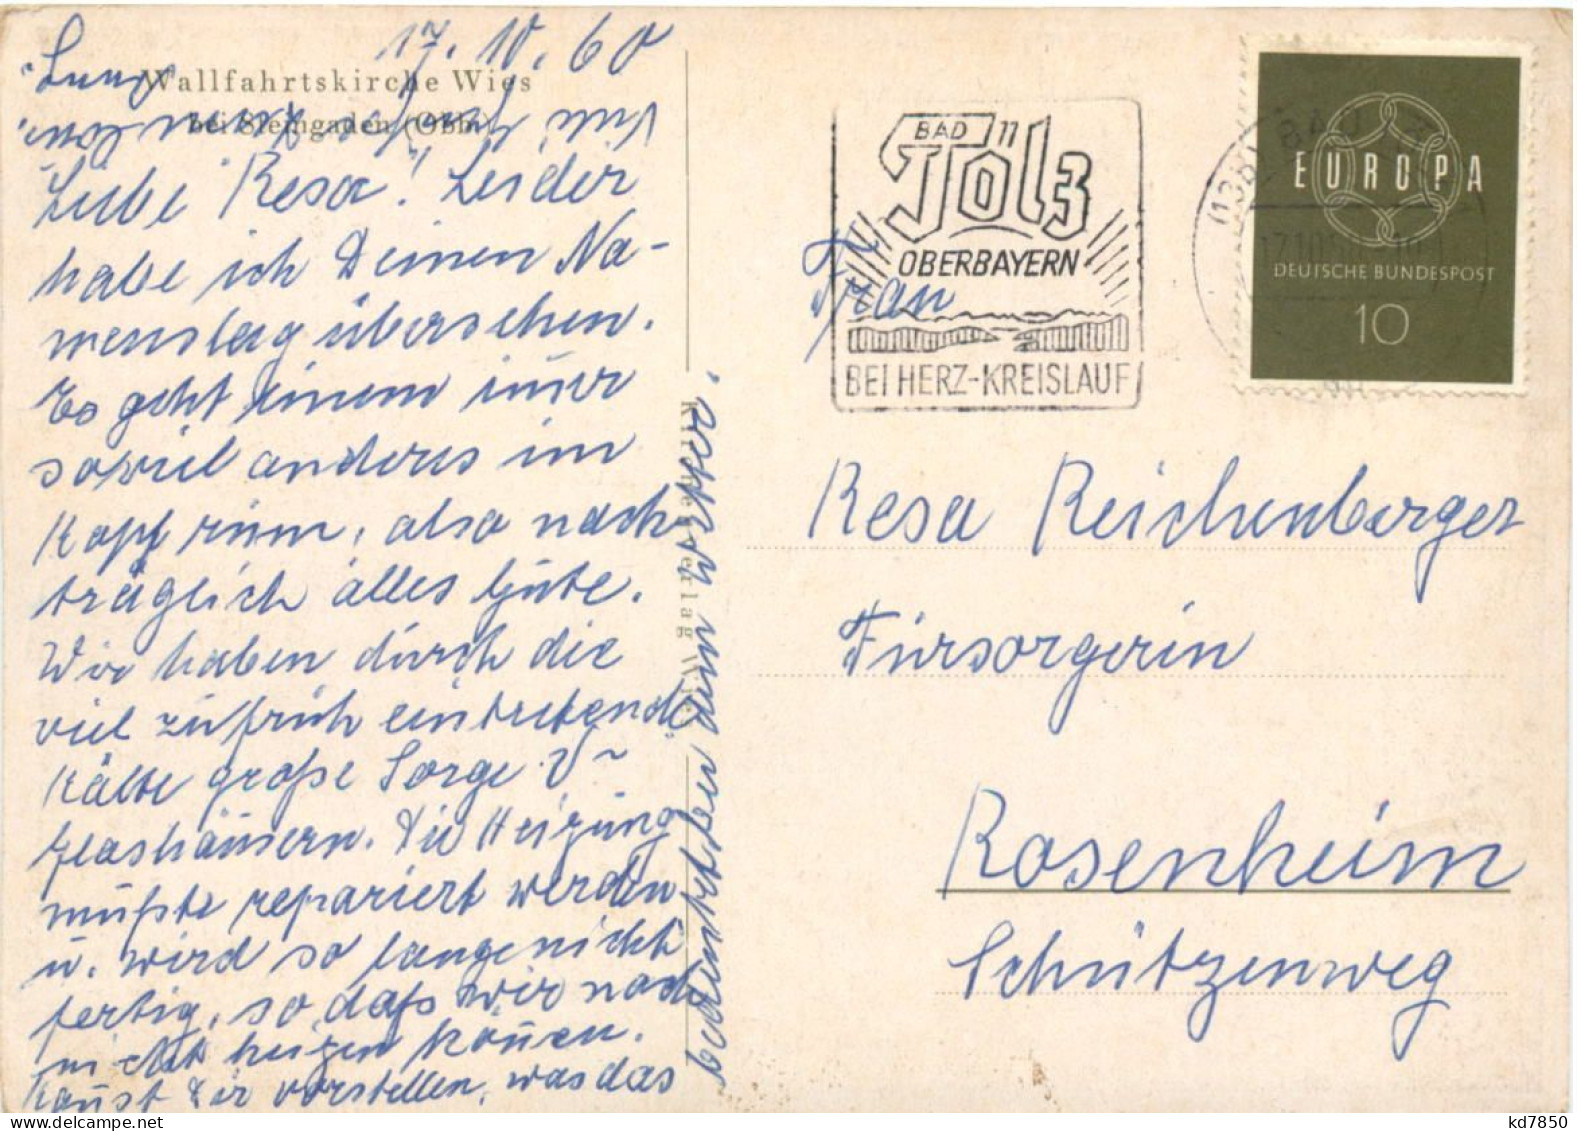 17. 10. 60
Wallfahrtskirche Wies
bei Steingaden (Obb.)
Liebe Resa! Leider
habe ich Deinen Na-
menstag übersehen.
Es geht einem im̄er
soviel anderes im
Kopf rum, also nach
träglich alles Gute.
Wir haben durch die
viel zu früh eintretende
Kälte große Sorge
Glashäusern. Die Heizung
müßte repariert werden
u. wird so lange nicht
fertig, so daß wir noch
nicht heizen kön̄en.
Kan̄st Dir vorstellen, was das
bedeutet bei dem Wetter.
Kirchenverlag Wies
BAD
Tölz
OBERBAYERN
BEI HERZ-KREISLAUF
(13b) BAD
EUROPA
DEUTSCHE BUNDESPOST
10
Frau
Resa Reichenberger
Fürsorgerin
Rosenheim
Schützenweg
kd7850